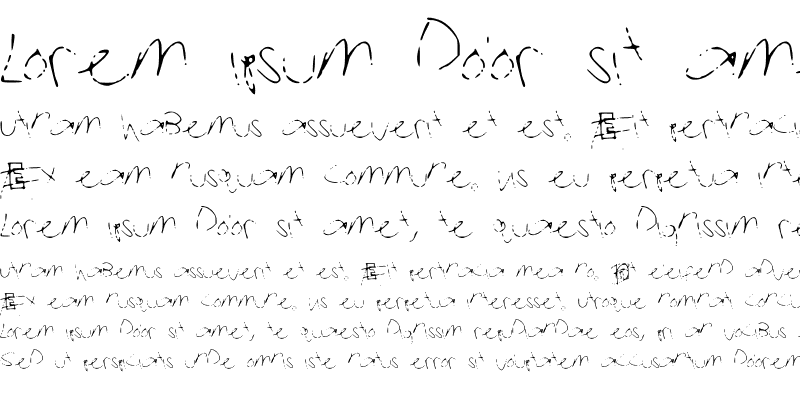 Lorem ipsum Dolor sit am
utram haBemus assueverit et est. Elit pertracta
Ex eam nusquam commune. us eu perpetua inte
Lorem ipsum Dolor sit amet, te quaestio Dignissim re
utram haBemus assueverit et est. Elit pertracta mea no. eleifenD aDve
Ex eam nusquam commune. us eu perpetua interesset. utroque
Lorem ipsum Dolor sit amet, te quaestio Dignissim repuDianDae eos, pri an vociBus
SeD ut perspiciatis unDe omnis iste natus error sit voluptatem accusantium Dolorem